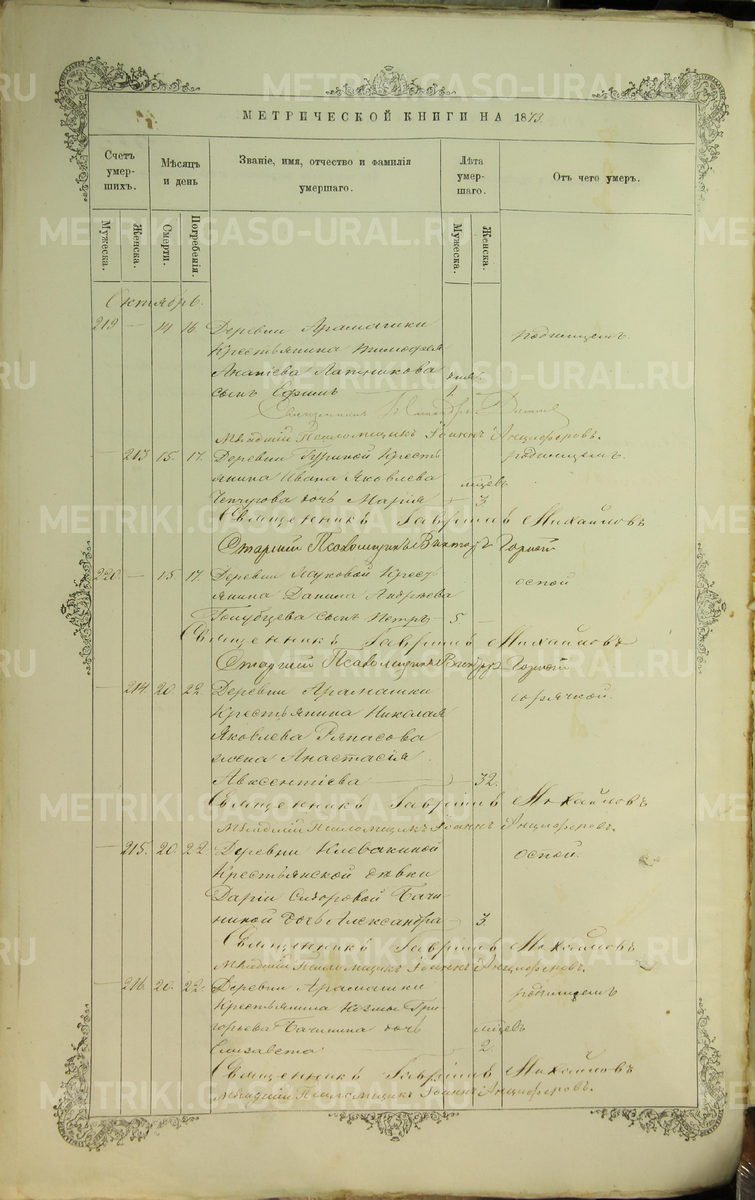 МЕТРИЧЕСКОЙ КНИГИ НА 1873.
Счетъ умер- шихъ. Мѣсяцъ и день Званіе, имя, отчество и фамилія умершаго. Лѣта умер- шаго. Отъ чего умеръ.
Мужеска. Женска. Смерти. Погребенія. Мужеска. Женска.
Октябрь.
219 — 14 16 Деревни Арамашки родимцемъ.
Крестьянина Тимофея
Ананіева Латникова
сынъ Ефимъ — 1
Священникъ
Младшій Псаломщикъ Іоаннъ Анциферовъ.
— 213 15. 17. Деревни Гуриной Кресть- родимцемъ.
янина Ивана Яковлева мѣсяцевъ
Чепчугова дочь Марія — 3
Священникъ Гавріилъ Михайловъ
Старшій Псаломщикъ Викторъ Горной
220. — 15 17. Деревни Луковой Крест- оспой
янина Данила Андреева
Голубцева сынъ Петръ — 5 —
Священникъ Гавріилъ Михайловъ
Старшій Псаломщикъ Викторъ Горной
— 214 20. 22 Деревни Арамашки горячкой.
Крестьянина Николая
Яковлева Ряпасова
жена Анастасія
Авксентіева — 32.
Священникъ Гавріилъ Михайловъ
Младшій Псаломщикъ Іоаннъ Анциферовъ.
— 215. 20. 22. Деревни Клевакиной оспой.
Крестьянской дѣвки
Даріи Сидоровой Бачи-
ниной дочь Александра — 3
Священникъ Гавріилъ Михайловъ
Младшій Псаломщикъ Іоаннъ Анциферовъ.
— 216. 20. 22. Деревни Арамашки родимцемъ
Крестьянина Козмы Гри-
горьева Бачинина дочь мѣсяцевъ
Елизавета 2.
Священникъ Гавріилъ Михайловъ
Младшій Псаломщикъ Іоаннъ Анциферовъ.
METRIKI.GASO-URAL.RU